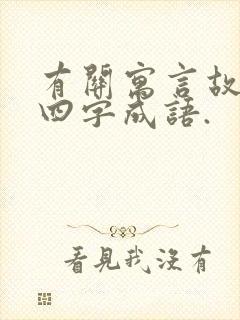 有關寓言故
四字成語.
看見我沒有